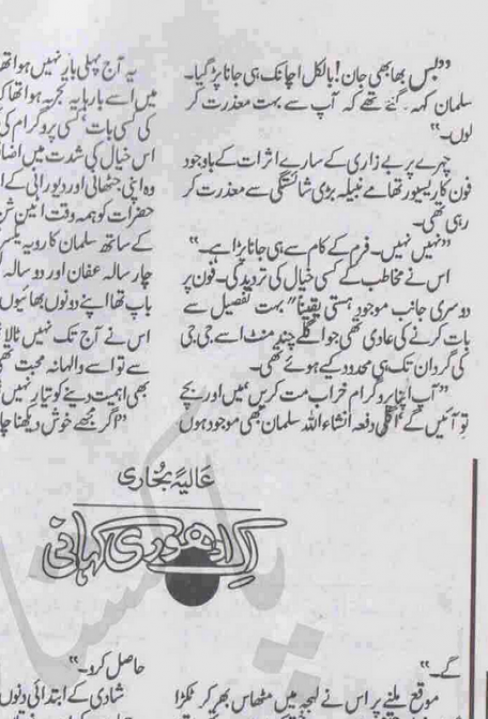 ”بس بھابھی جان! بالکل اچانک ہی جانا پڑ گیا۔
سلمان کہہ گئے تھے کہ آپ سے بہت معذرت کر
لوں۔“
چہرے پر بے زاری کے سارے اثرات کے باوجود
فون کا ریسیور تھامے نبیلہ بڑی شائستگی سے معذرت کر
رہی تھی۔
”نہیں نہیں۔ فرم کے کام سے ہی جانا پڑا ہے۔“
اس نے مخاطب کے کسی خیال کی تردید کی۔ فون پر
دوسری جانب موجود ہستی یقیناً“ بہت تفصیل سے
بات کرنے کی عادی تھی جو اگلے چند منٹ اسے جی جی
کی گردان تک ہی محدود کیے ہوئے تھی۔
”آپ اپنا پروگرام خراب مت کریں ہمیں اور بچے
تو آئیں گے‘ اگلی دفعہ انشاءاللہ سلمان بھی موجود ہوں
عالیہ بخاری
اک ادھوری کہانی
گے۔“
موقع ملنے پر اس نے لہجہ میں مٹھاس بھر کر ٹکڑا
یہ آج پہلی بار نہیں ہوا تھا
میں اسے بارہا یہ تجربہ ہوا تھا کہ
کی کسی بات‘ کسی پروگرام کی
اس خیال کی شدت میں اضا
وہ اپنی جٹھانی اور دیورانی کے
حضرات کو ہمہ وقت اٹین شن
کے ساتھ سلمان کا رویہ یکسر
چار سالہ عفان اور دو سالہ
باپ تھا اپنے دونوں بھائیوں
اس نے آج تک نہیں ٹالا
سے تو اسے والہانہ محبت تھی
بھی اہمیت دینے کو تیار نہیں
”اگر مجھے خوش دیکھنا چا
حاصل کرو۔“
شادی کے ابتدائی دنوں